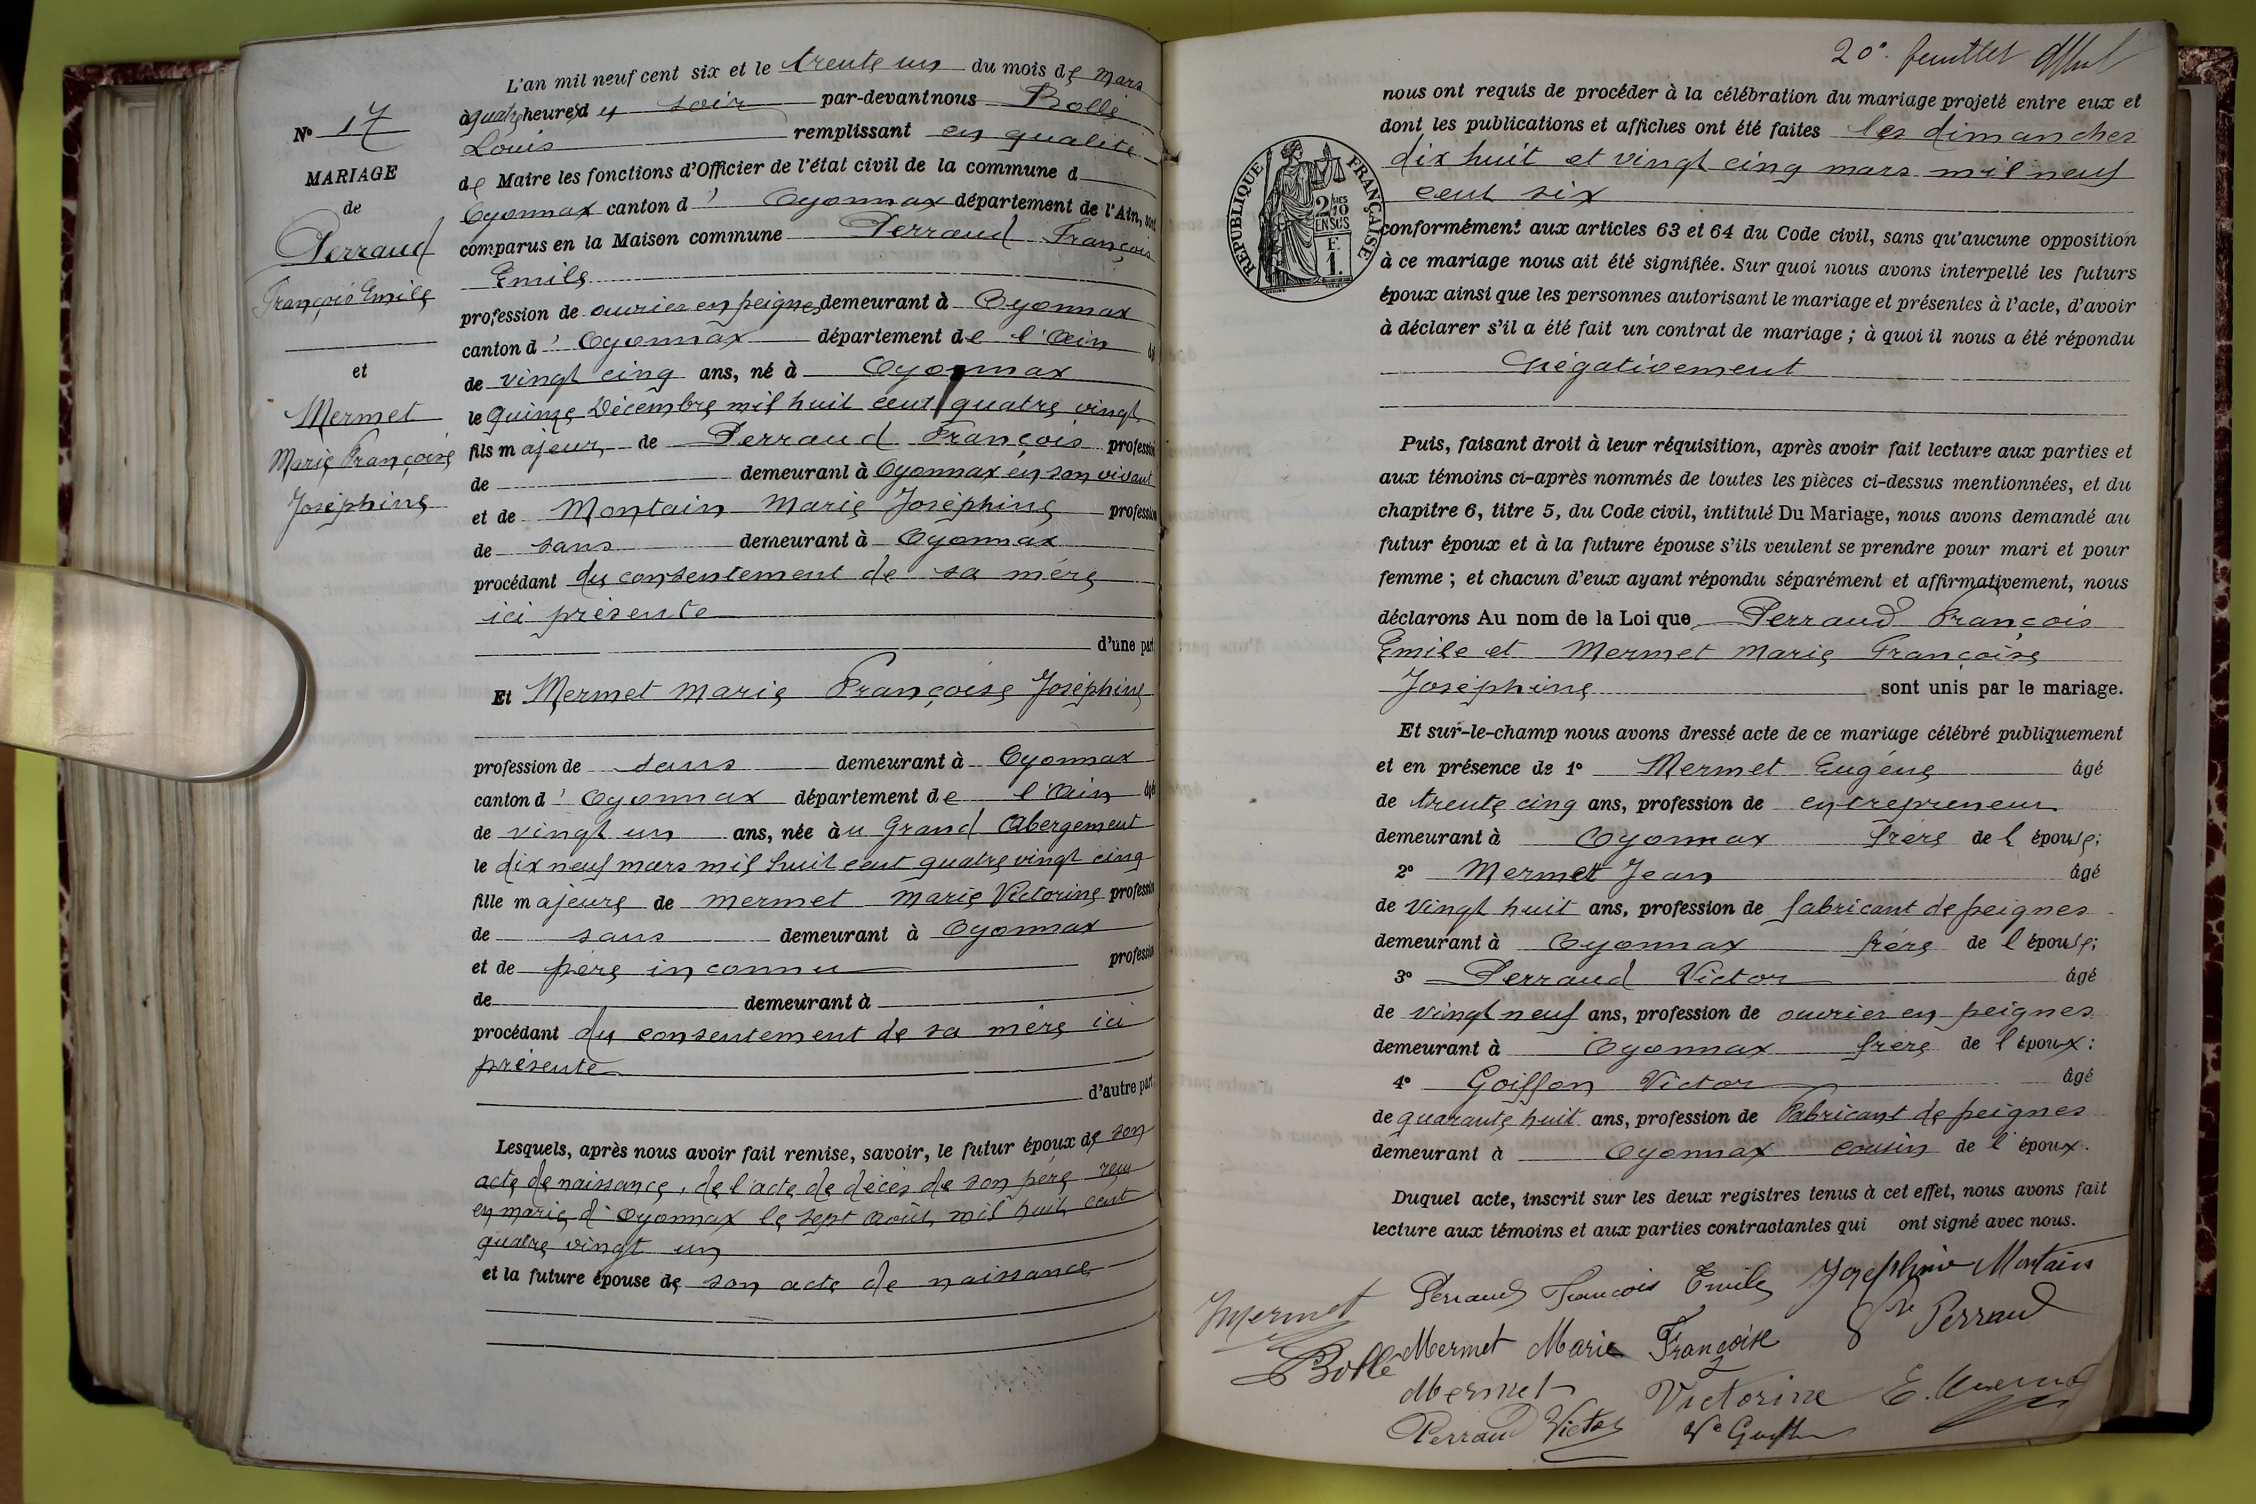 N° 17
MARIAGE
de
Perraud
François Emile
et
Mermet
Marie Françoise
Joséphine
L'an mil neuf cent six et le trente un du mois de mars
à quatre heures du soir par-devant nous Bollé
Louis remplissant en qualité
de Maire les fonctions d'Officier de l'état civil de la commune d
Oyonnax canton d' Oyonnax département de l'Ain, sont
comparus en la Maison commune Perraud François
Emile
profession de ouvrier en peignes demeurant à Oyonnax
canton d' Oyonnax département de l'Ain
de vingt cinq ans, né à Oyonnax
le quinze Décembre mil huit cent quatre vingt
fils majeur de Perraud François profession
de demeurant à Oyonnax en son vivant
et de Montain Marie Joséphine profession
de sans demeurant à Oyonnax
procédant du consentement de sa mère
ici présente
d'une part
Et Mermet Marie Françoise Joséphine
profession de sans demeurant à Oyonnax
canton d' Oyonnax département de l'Ain âgée
de vingt un ans, née àu Grand Abergement
le dix neuf mars mil huit cent quatre vingt cinq
fille majeure de Mermet Marie Victorine profession
de sans demeurant à Oyonnax
et de père inconnu profession
de demeurant à
procédant du consentement de sa mère ici
présente
d'autre part.
Lesquels, après nous avoir fait remise, savoir, le futur époux de son
acte de naissance, de l'acte de décès de son père reçu
en mairie d'Oyonnax le sept Août mil huit cent
quatre vingt un
et la future épouse de son acte de naissance
20e feuillet
nous ont requis de procéder à la célébration du mariage projeté entre eux et
dont les publications et affiches ont été faites les dimanches
dix huit et vingt cinq mars mil neuf
cent six
RÉPUBLIQUE FRANÇAISE
2/10
EN SUS
F.
1.
conformément aux articles 63 et 64 du Code civil, sans qu'aucune opposition
à ce mariage nous ait été signifiée. Sur quoi nous avons interpellé les futurs
époux ainsi que les personnes autorisant le mariage et présentes à l'acte, d'avoir
à déclarer s'il a été fait un contrat de mariage ; à quoi il nous a été répondu
Négativement
Puis, faisant droit à leur réquisition, après avoir fait lecture aux parties et
aux témoins ci-après nommés de toutes les pièces ci-dessus mentionnées, et du
chapitre 6, titre 5, du Code civil, intitulé Du Mariage, nous avons demandé au
futur époux et à la future épouse s'ils veulent se prendre pour mari et pour
femme ; et chacun d'eux ayant répondu séparément et affirmativement, nous
déclarons Au nom de la Loi que Perraud François
Emile et Mermet Marie Françoise
Joséphine sont unis par le mariage.
Et sur-le-champ nous avons dressé acte de ce mariage célébré publiquement
et en présence de 1° Mermet Eugène âgé
de trente cinq ans, profession de entrepreneur
demeurant à Oyonnax frère de l'épouse;
2° Mermet Jean âgé
de vingt huit ans, profession de fabricant de peignes
demeurant à Oyonnax frère de l'épouse;
3° Perraud Victor âgé
de vingt neuf ans, profession de ouvrier en peignes
demeurant à Oyonnax frère de l'époux:
4° Goiffon Victor âgé
de quarante huit ans, profession de Fabricant de peignes
demeurant à Oyonnax cousin de l'époux.
Duquel acte, inscrit sur les deux registres tenus à cet effet, nous avons fait
lecture aux témoins et aux parties contractantes qui ont signé avec nous.
Perraud François Emile Joséphine Montain
Mermet Ve Perraud
Mermet Marie Françoise
Bollé
Mermet Victorine E. Mermet
Perraud Victor